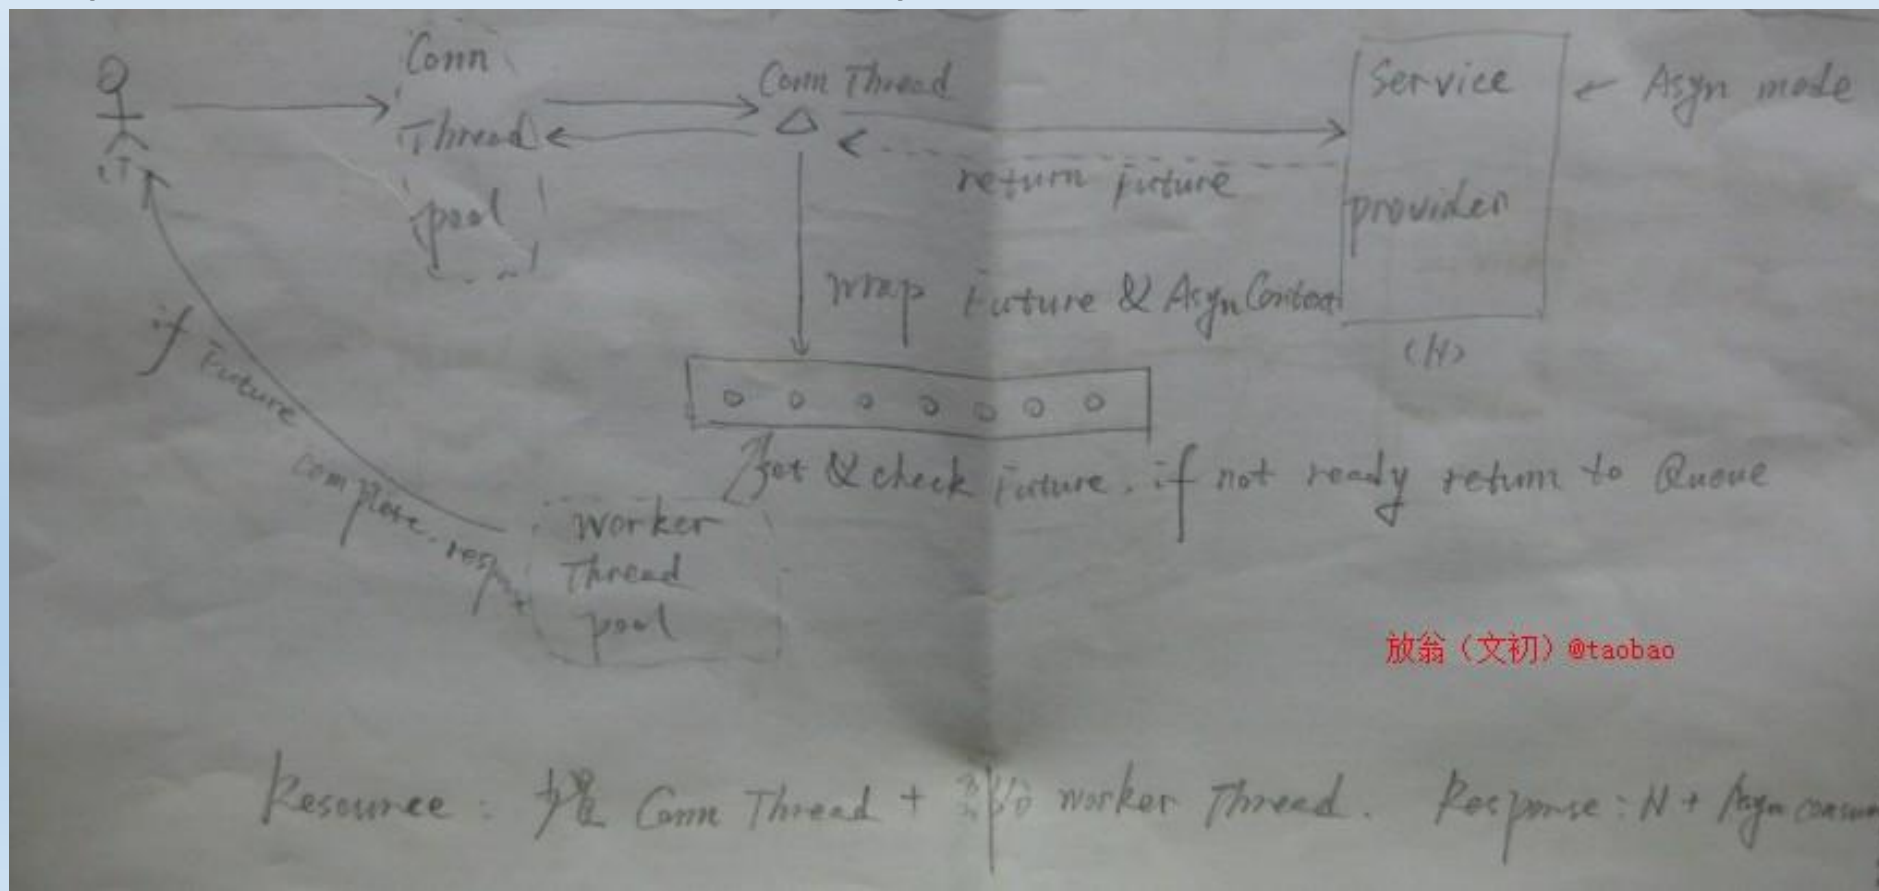 Conn
Thread
pool
Conn Thread
return Future
Service
provider
← Asyn mode
(N)
wrap Future & AsynContext
get & check Future, if not ready return to Queue
if Future complete, respo
worker
Thread
pool
放翁（文初）@taobao
Resource : 少量 Conn Thread + worker Thread. Response : N + Asyn consum